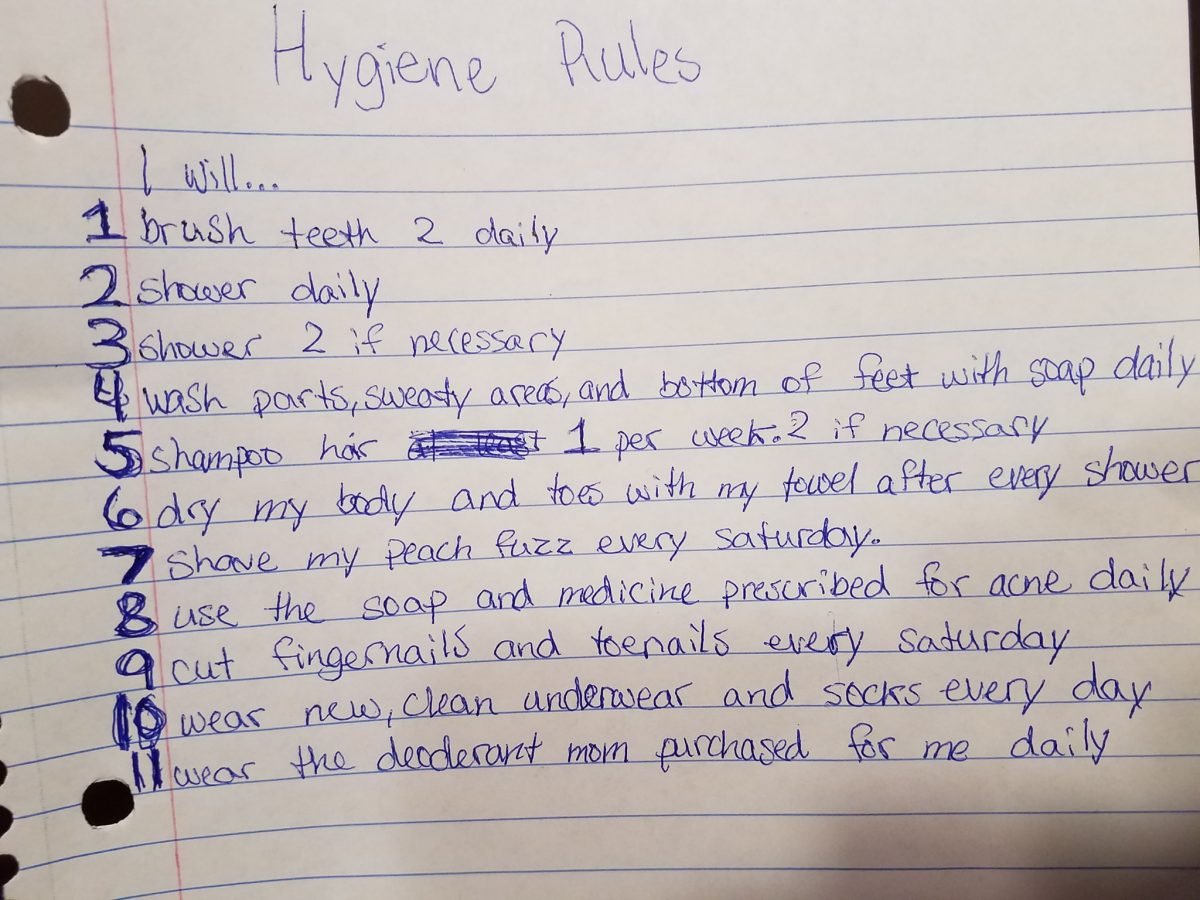 Hygiene Rules
I will...
1 brush teeth 2 daily
2 shower daily
3 shower 2 if necessary
4 wash parts, sweaty areas, and bottom of feet with soap daily
5 shampoo hair at least 1 per week. 2 if necessary
6 dry my body and toes with my towel after every shower
7 shave my peach fuzz every saturday.
8 use the soap and medicine prescribed for acne daily
9 cut fingernails and toenails every saturday
10 wear new, clean underwear and socks every day
11 wear the deoderant mom purchased for me daily